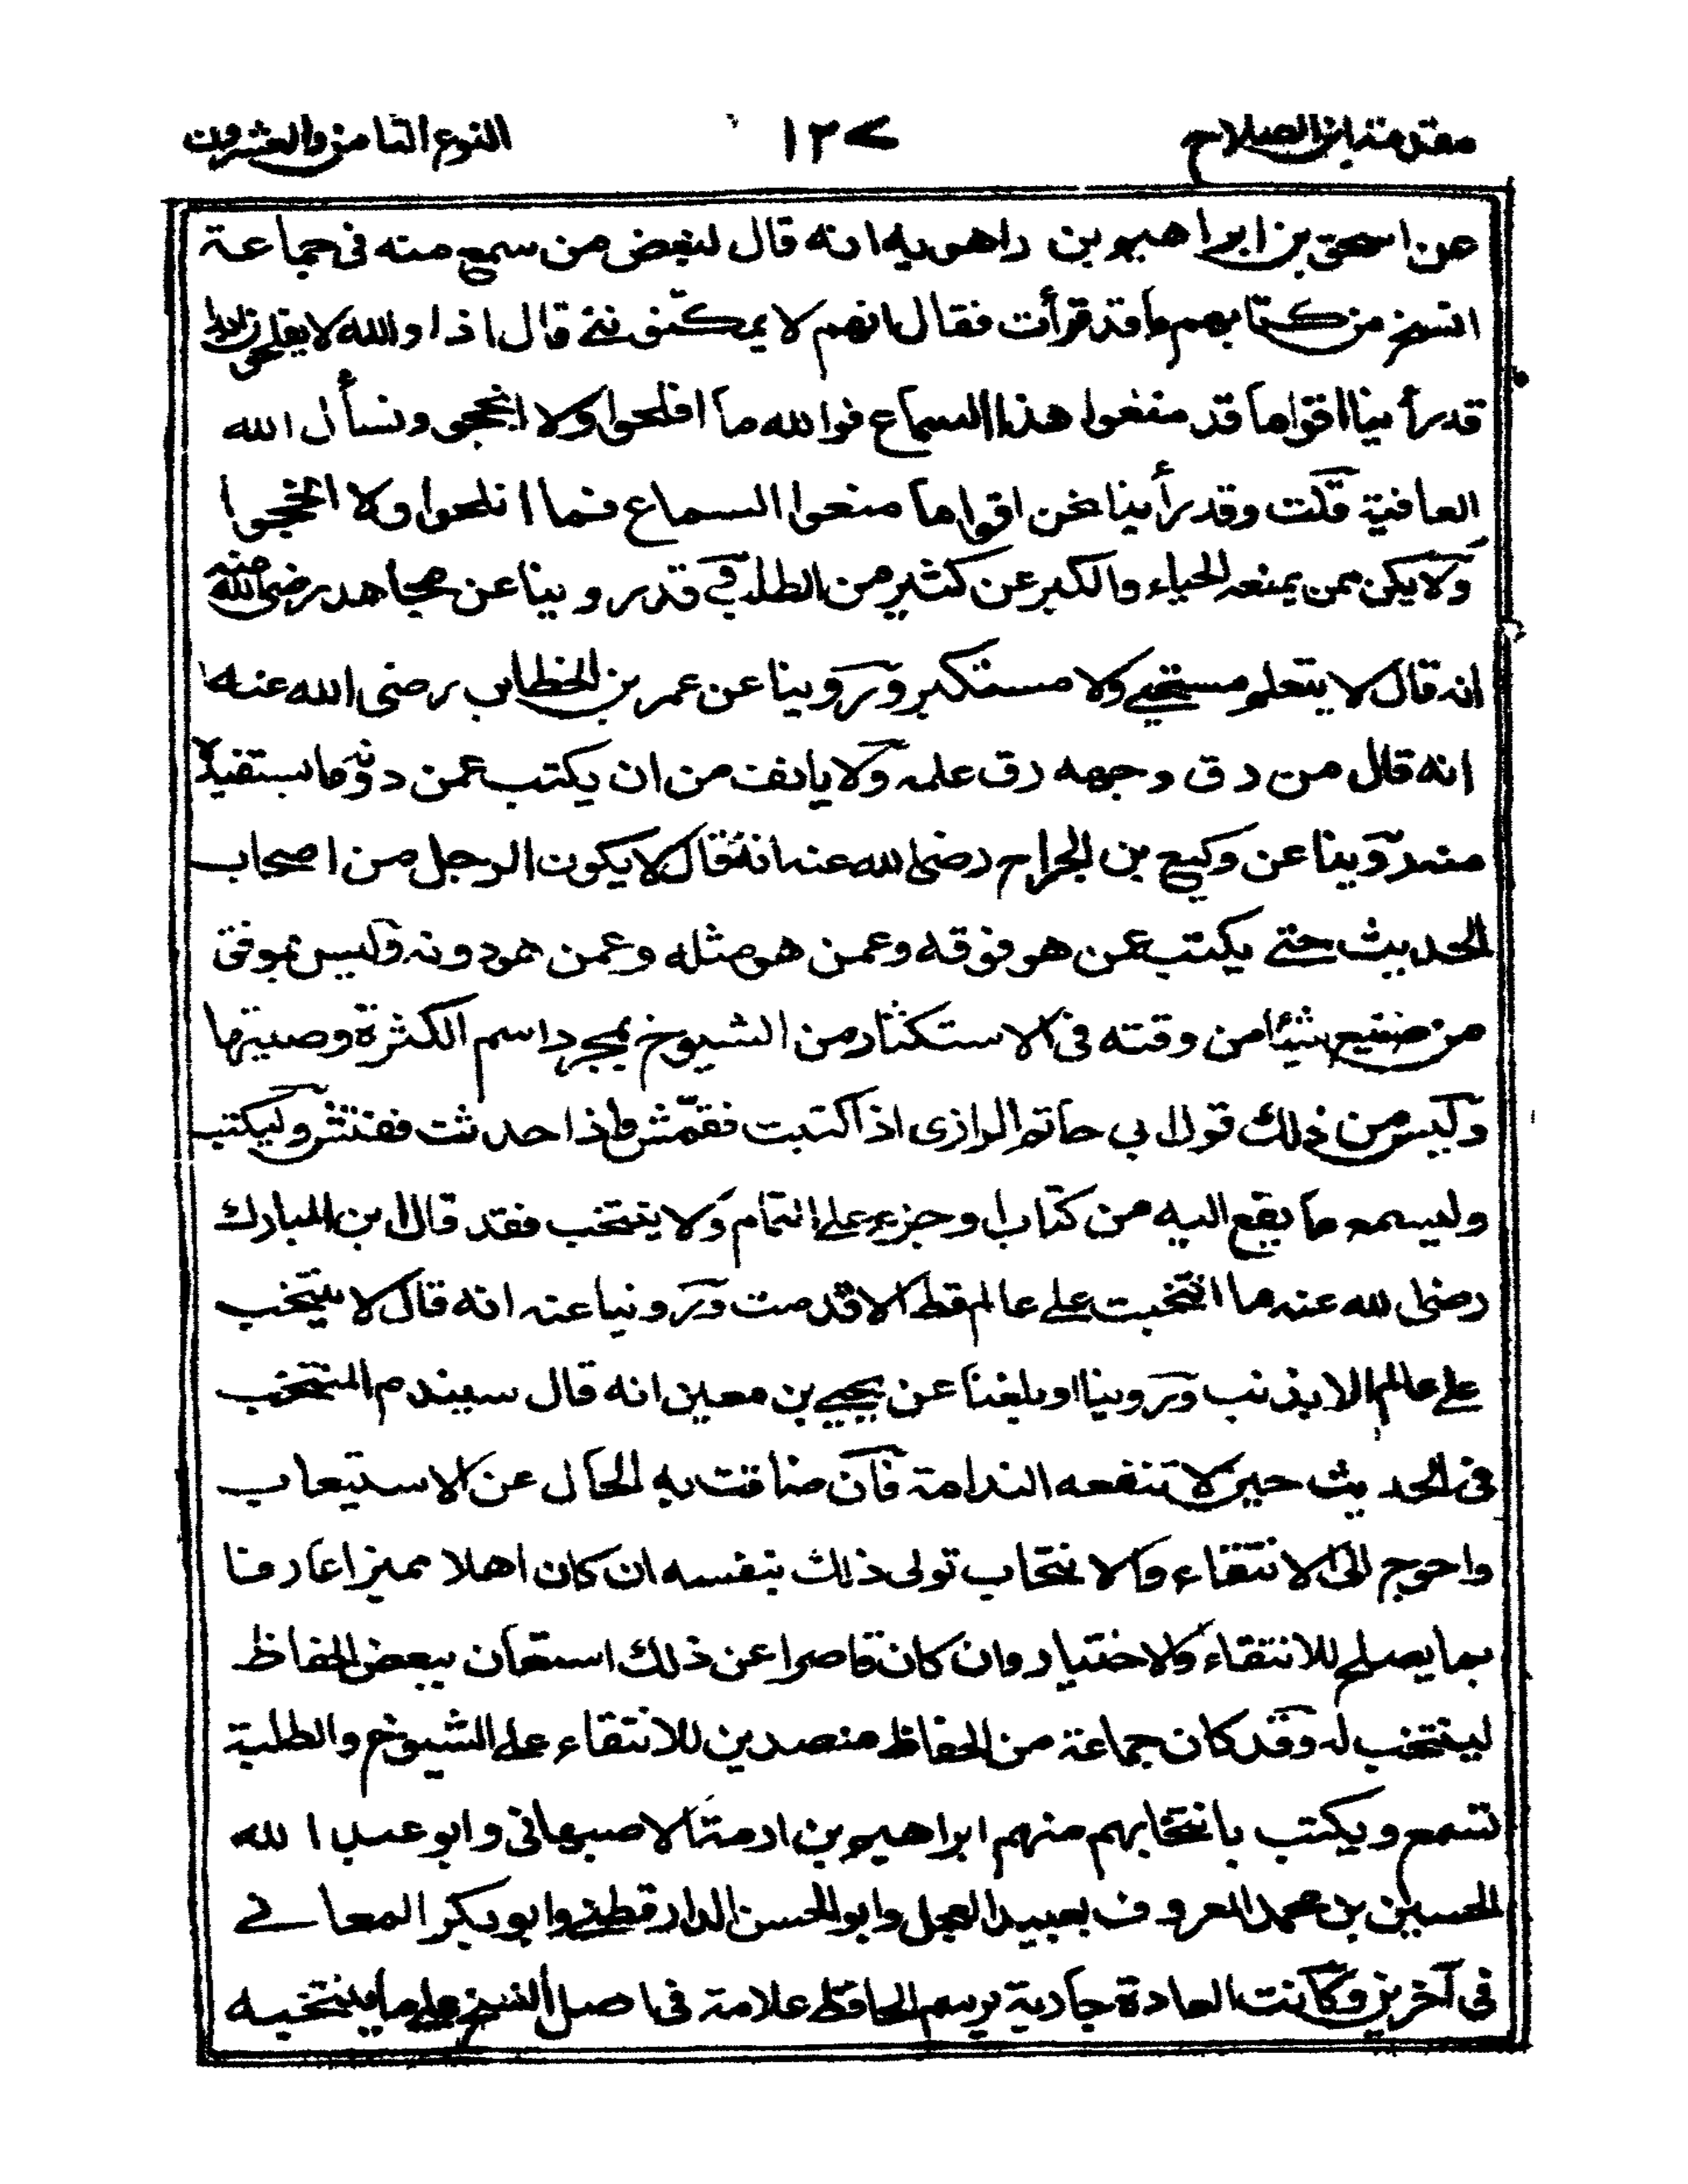 مقدمة ابن الصلاح ١٣٧ النوع الثامن والعشرون
عن اسحق بن ابراهيم بن راهويه انه قال لبعض من سمع منه في جماعة
انسخ من كتابهم ما قد قرأت فقال انهم لا يمكنونني قال اذا والله لا يفلحون
قد رأينا اقواما قد منعوا هذا السماع فوالله ما افلحوا ولا انجحوا ونسأل الله
العافية قلت وقد رأينا نحن اقواما منعوا السماع فما افلحوا ولا انجحوا
ولا يكن ممن يمنعه الحياء والكبر عن كثير من الطلب وقد روينا عن مجاهد رضي الله عنه
انه قال لا يتعلم مستحيي ولا مستكبر وروينا عن عمر بن الخطاب رضى الله عنه
انه قال من رق وجهه رق علمه ولا يانف من ان يكتب عمن دونه ما يستفيد
منه روينا عن وكيع بن الجراح رضى الله عنه انه قال لا يكون الرجل من اصحاب
الحديث حتى يكتب عمن هو فوقه وعمن هو مثله وعمن هو دونه وليس بموفق
من ضيع شيئا من وقته في الاستكثار من الشيوخ لمجرد اسم الكثرة وصيتها
وليس من ذلك قول ابي حاتم الرازى اذا كتبت فقمش واذا حدثت ففتش وليكتب
وليسمع ما يقع اليه من كتاب او جزء على التمام ولا ينتخب فقد قال ابن المبارك
رضى الله عنه ما انتخبت على عالم قط الا ندمت وروينا عنه انه قال لا ينتخب
على عالم الا بذنب وروينا او بلغنا عن يحيى بن معين انه قال سيندم المنتخب
في الحديث حين لا تنفعه الندامة فان ضاقت به الحال عن الاستيعاب
واحوج الى الانتقاء والانتخاب تولى ذلك بنفسه ان كان اهلا مميزا عارفا
بما يصلح للانتقاء والاختيار وان كان قاصرا عن ذلك استعان ببعض الحفاظ
لينتخب له وقد كان جماعة من الحفاظ متصدين للانتقاء على الشيوخ والطلبة
تسمع ويكتب بانتخابهم منهم ابراهيم بن ارمة الاصبهاني وابو عبد الله
الحسين بن محمد المعروف بعبيد العجل وابو الحسن الدارقطني وابو بكر المعاني
في آخرين وكانت العادة جارية برسم الحافظ علامة في اصل الشيخ على ما ينتخبه